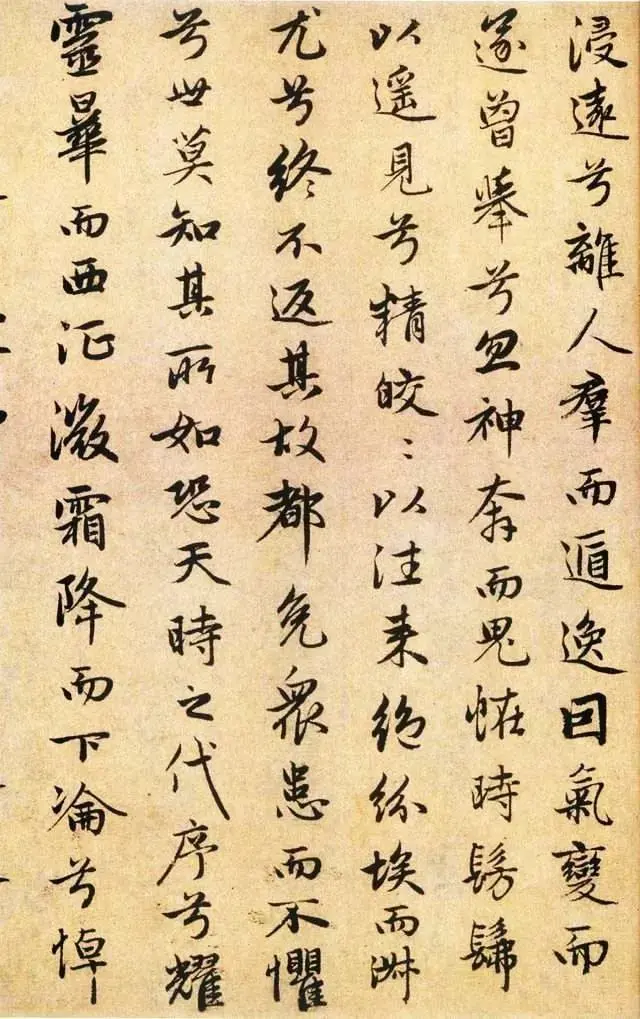 浸遠兮離人羣而遁逸囙氣變而
遂曾舉兮忽神奔而鬼恠時髣髴
以遥見兮精皎〻以往来絶紛埃而淋
尤兮終不返其故都免衆患而不懼
兮世莫知其所如恐天時之代序兮耀
靈曅而西征溦霜降而下淪兮悼